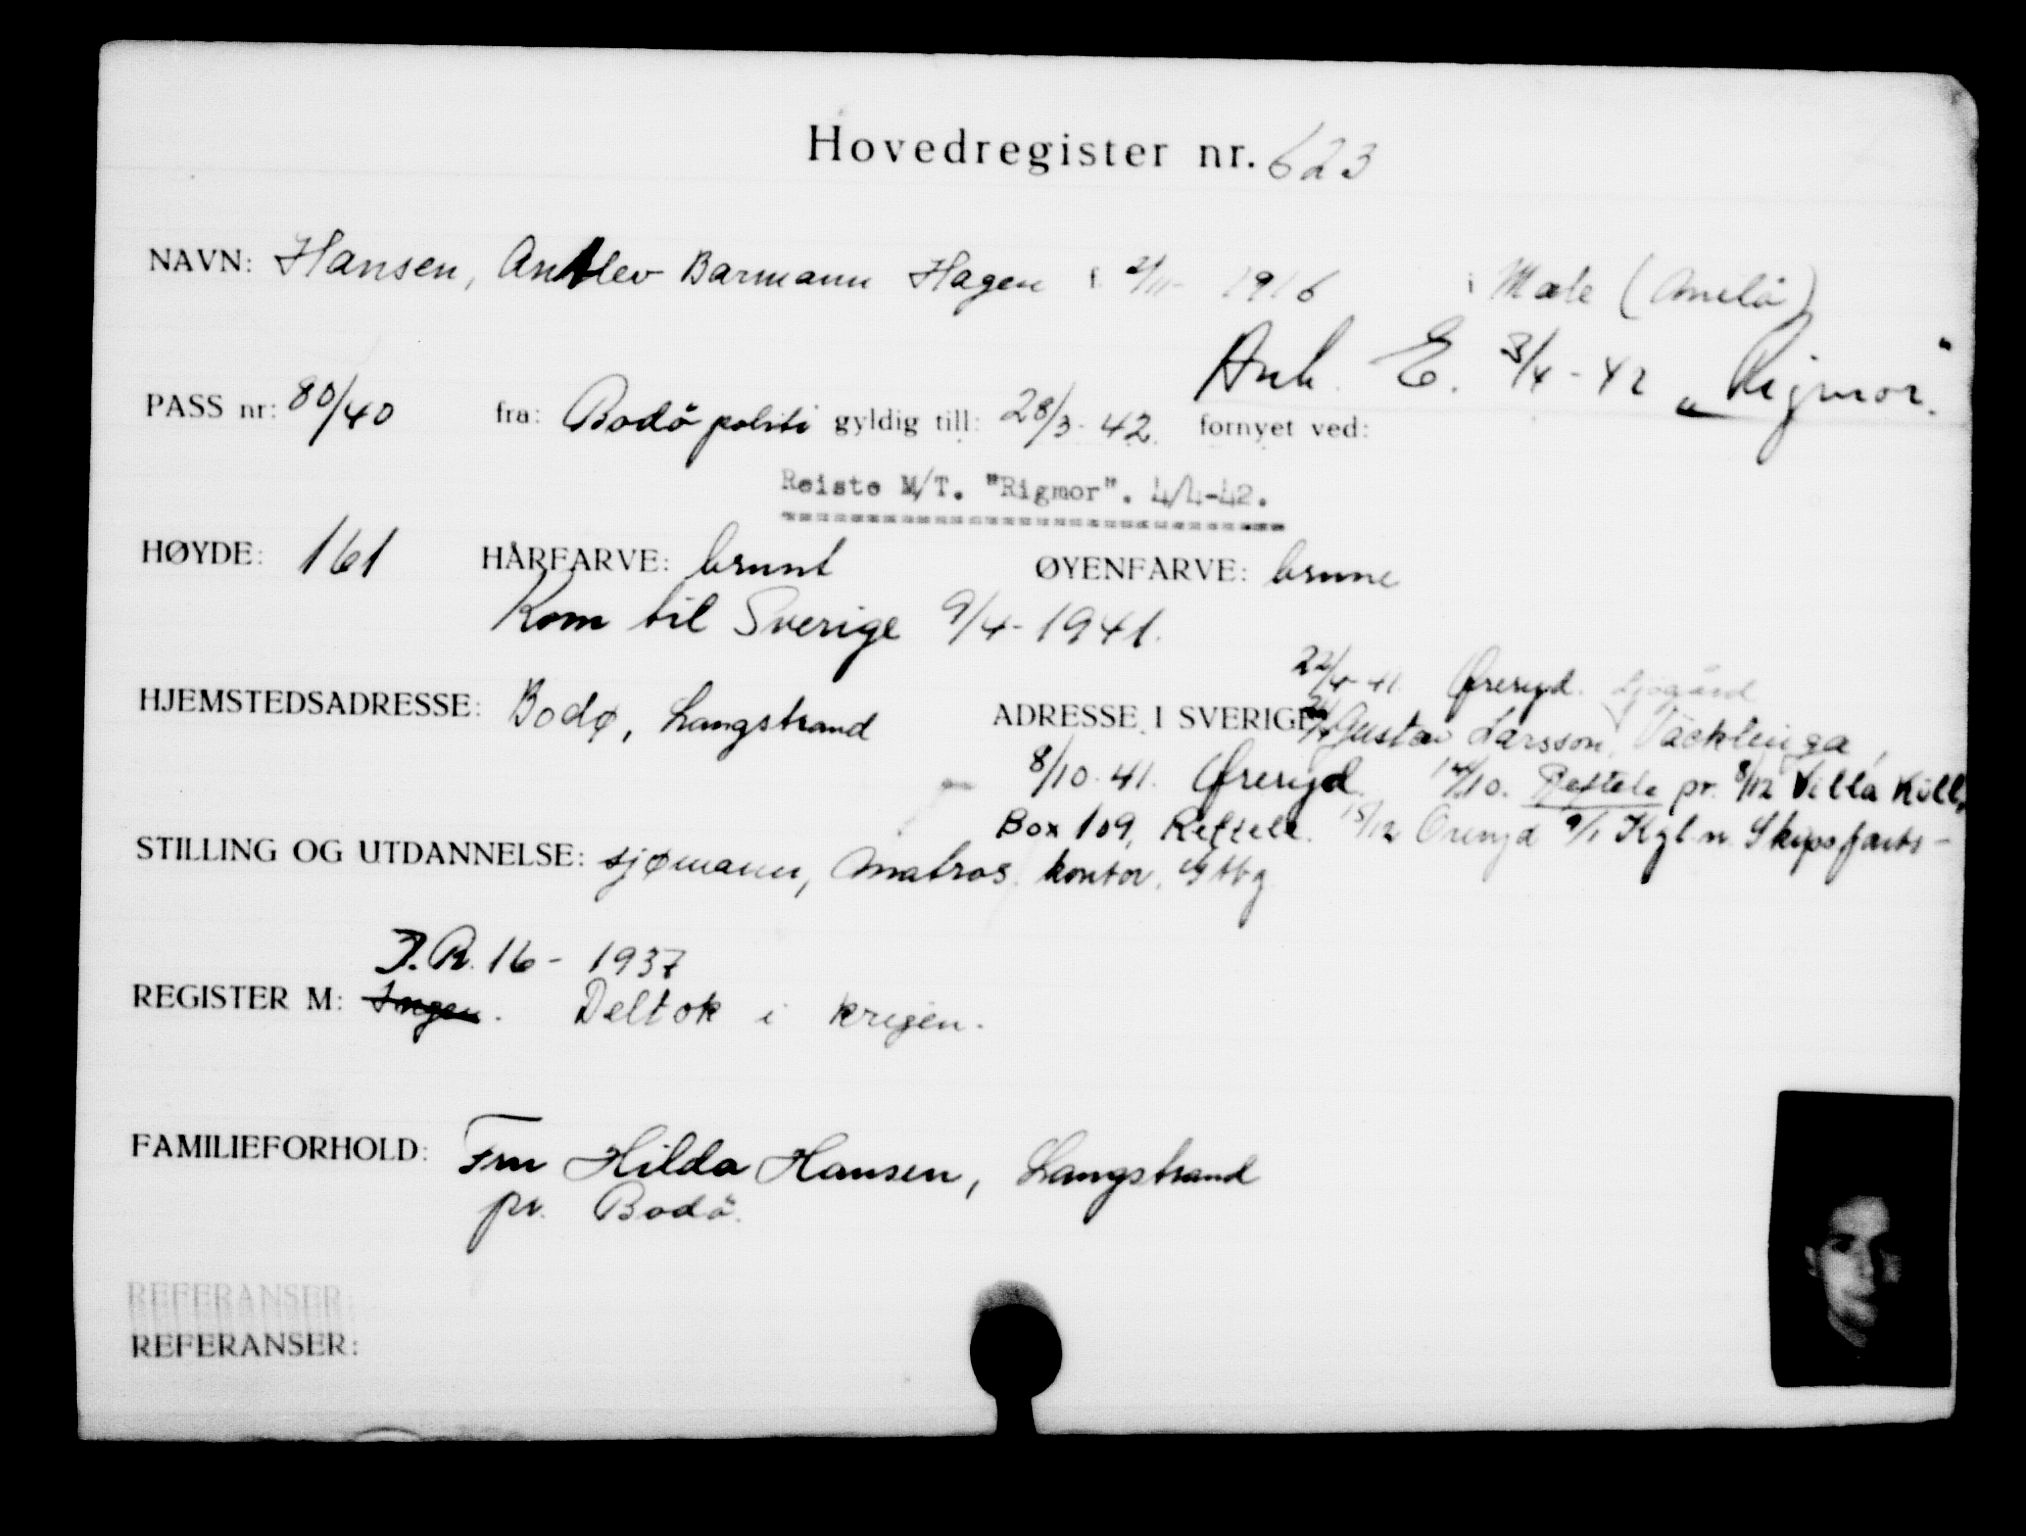 Hovedregister nr. 623
NAVN: Hansen, Antlev Barmann Hagen f. 2/11- 1916 i Mæle (Amelå)
Ank. E. 3/4-42 „Rigmor"
PASS nr: 80/40 fra: Bodö politi gyldig till: 28/3-42. fornyet ved:
Reiste M/T. "Rigmor". 4/4-42.
HØYDE: 161 HÅRFARVE: brunt ØYENFARVE: brune
Kom til Sverige 9/4-1941.
22/4-41. Øreryd. Sjögård
HJEMSTEDSADRESSE: Bodø, Langstrand ADRESSE I SVERIGE: Gustav Larsson, Väcklinga,
8/10-41. Øreryd. 14/10. Reftele pr. 8/12 Villa Kull,
Box 109, Reftele. 15/12 Öreryd 9/1 Kgl. n. Skipsfarts-
STILLING OG UTDANNELSE: sjømann, Matros. kontor, Gtbg
I.R. 16 - 1937
REGISTER M: Ingen. Deltok i krigen.
FAMILIEFORHOLD: Fru Hilda Hansen, Langstrand
pr. Bodö.
REFERANSER
REFERANSER: